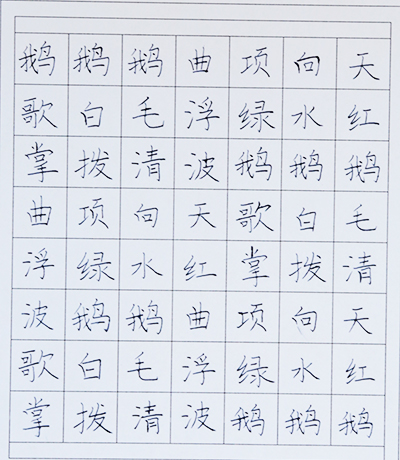 鹅鹅鹅曲项向天
歌白毛浮绿水红
掌拨清波鹅鹅鹅
曲项向天歌白毛
浮绿水红掌拨清
波鹅鹅曲项向天
歌白毛浮绿水红
掌拨清波鹅鹅鹅